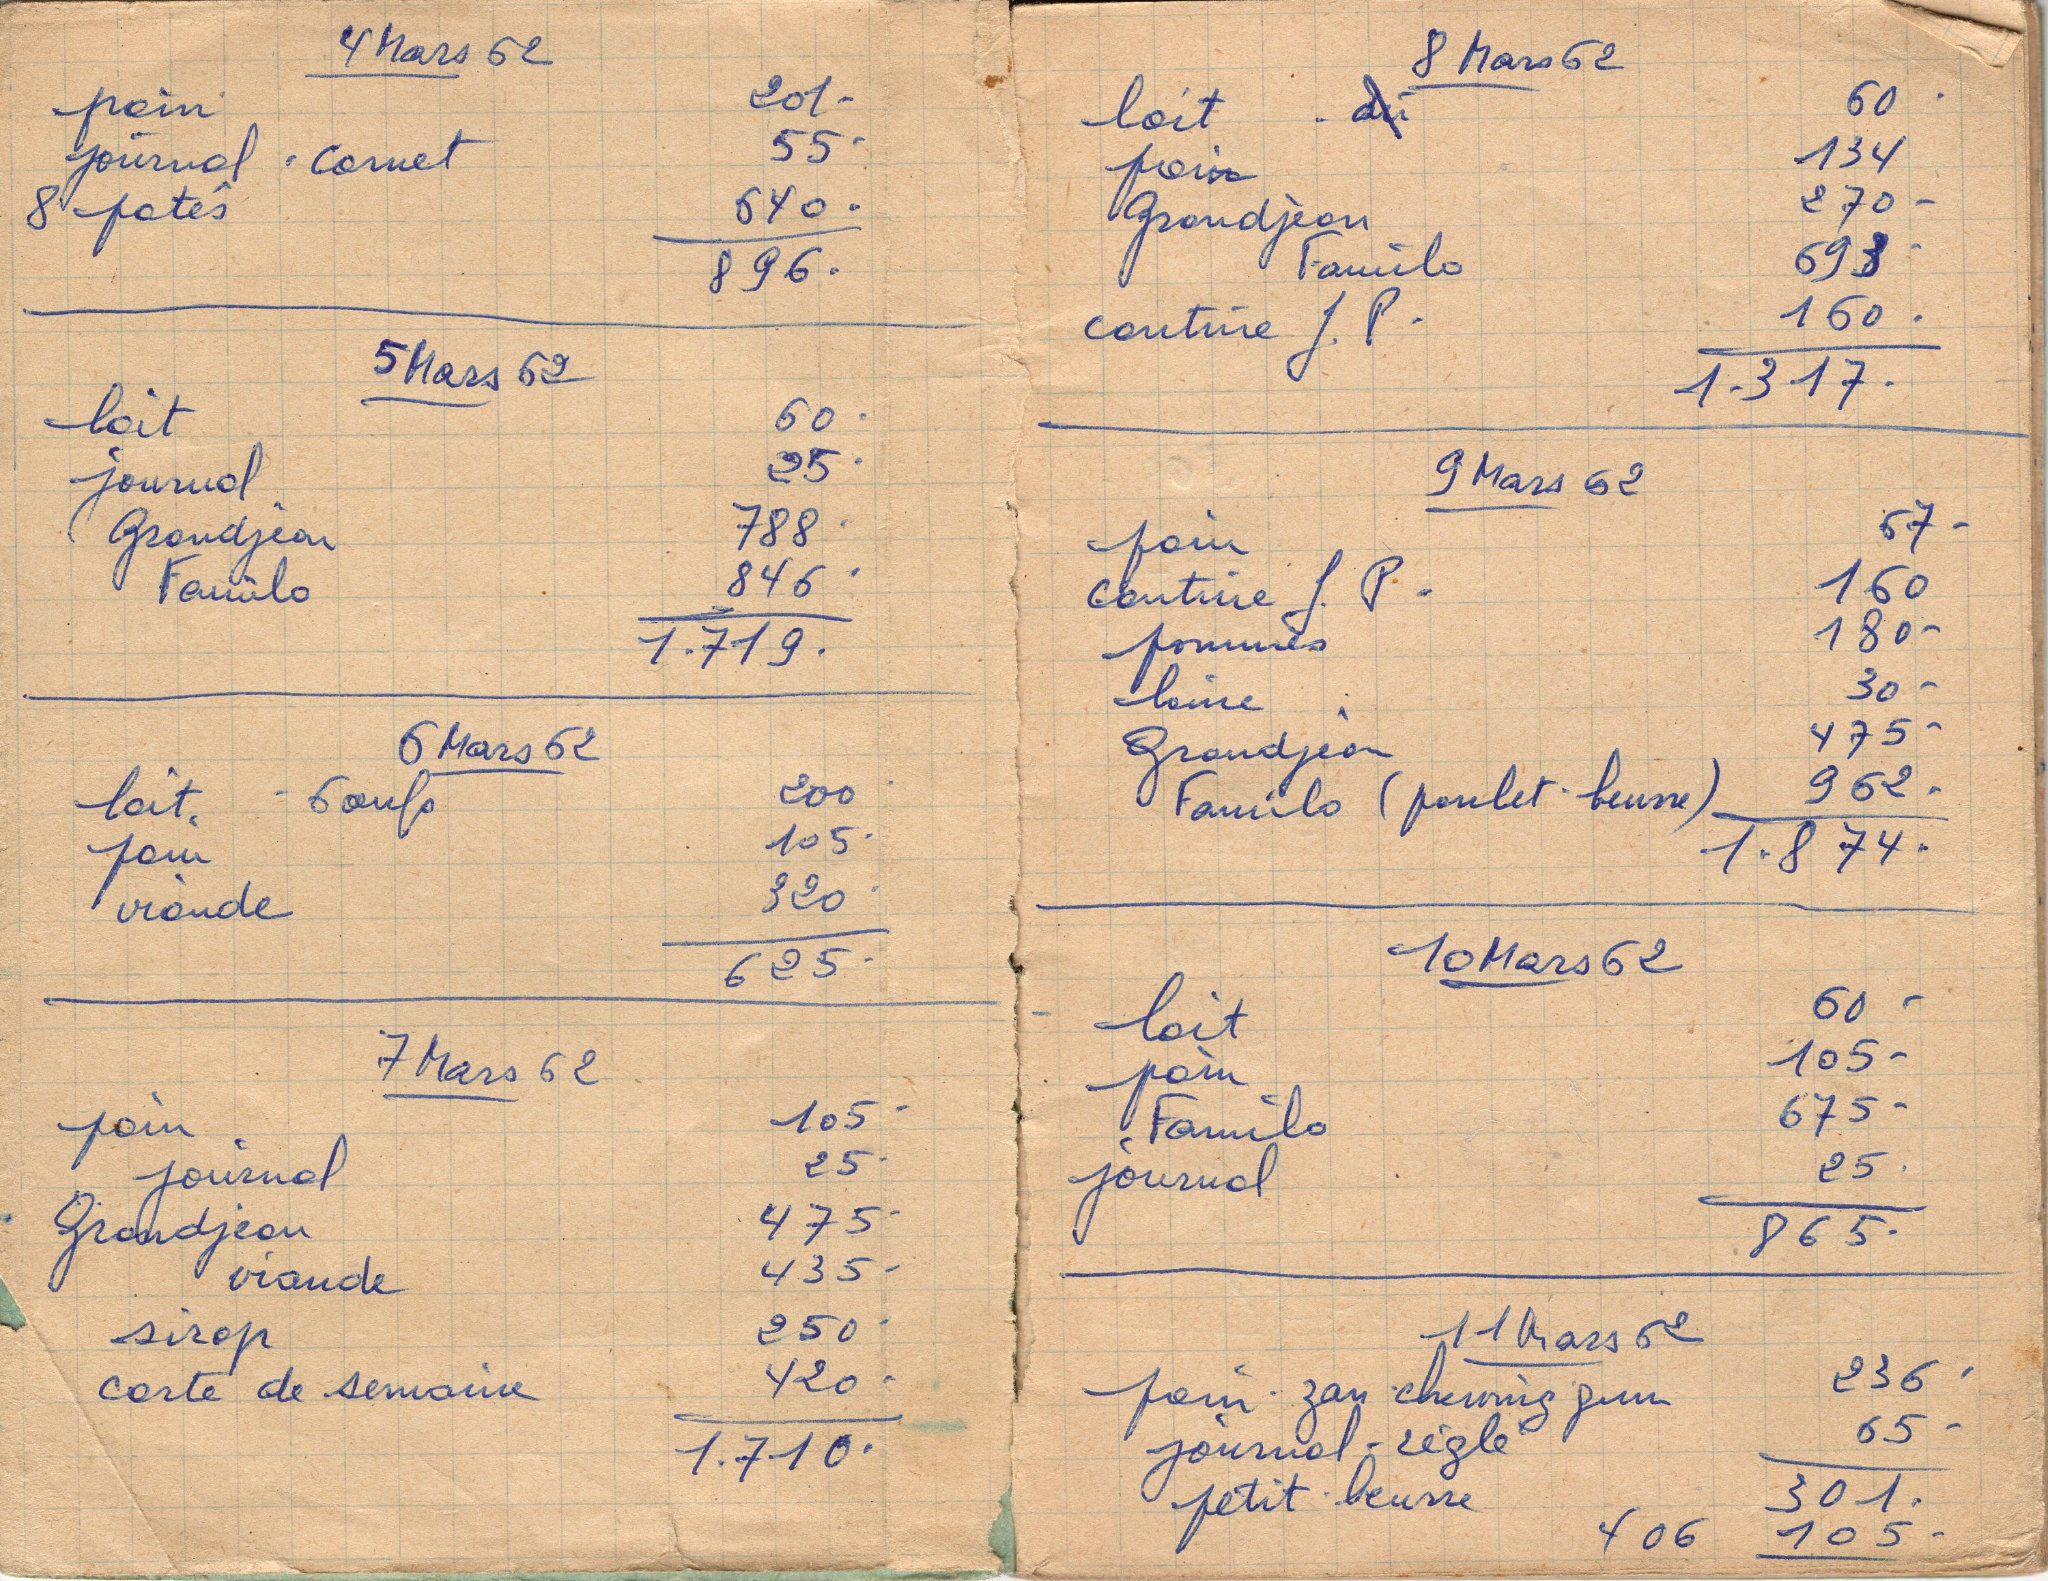 4 Mars 62
pain 201-
journal . carnet 55.
8 patés 640.
896.
5 Mars 62
lait 60.
journal 25.
Grandjean 788.
Familo 846.
1.719.
6 Mars 62
lait. - 6 œufs 200
pain 105.
viande 320.
625.
7 Mars 62
pain 105-
journal 25.
Grandjean 475-
viande 435-
sirop 250.
carte de semaine 420.
1.710.
8 Mars 62
lait 60.
pain 134
Grandjean 270-
Familo 693-
cantine J. P. 160.
1.317.
9 Mars 62
pain 67-
cantine J. P. 160
pommes 180-
laine 30-
Grandjean 475-
Familo (poulet. beurre) 962.
1.874.
10 Mars 62
lait 60-
pain 105-
Familo 675-
journal 25.
865.
11 Mars 62
pain. zan. chewing gum 236.
journal - règle 65-
301.
petit. beurre
406 105-